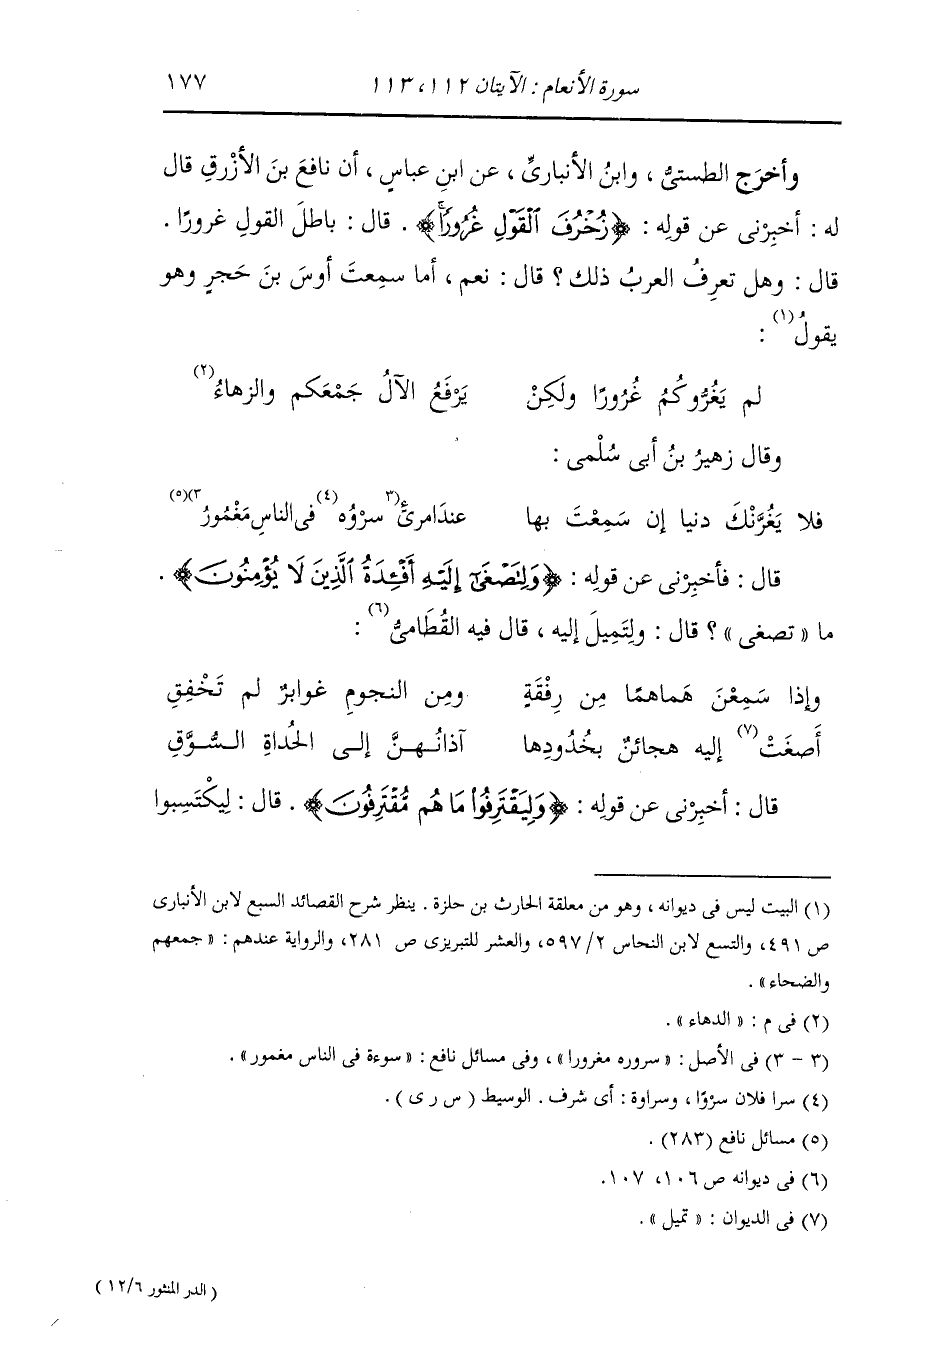 سورة الأنعام : الآيتان ١١٢، ١١٣ ١٧٧
وأخرَج الطستىُّ ، وابنُ الأنبارىِّ ، عن ابنِ عباسٍ ، أن نافعَ بنَ الأزْرقِ قال
له : أخبِرْنى عن قولِه : ﴿زُخْرُفَ ٱلْقَوْلِ غُرُورًاۚ﴾ . قال : باطلَ القولِ غرورًا .
قال : وهل تعرِفُ العربُ ذلك ؟ قال : نعم ، أما سمِعتَ أوسَ بنَ حَجرٍ وهو
يقولُ(١) :
لم يَغُرُّوكُمُ غُرُورًا ولَكِنْ يَرْفَعُ الآلُ جَمْعَكم والزهاءُ(٢)
وقال زهيرُ بنُ أبى سُلْمى :
فلا يَغُرَّنْكَ دنيا إن سَمِعْتَ بها عندَ امرئٍ(٣ سرْؤُه(٤) فى الناسِ مَغْمُورُ٣)(٥)
قال : فأخبِرْنى عن قولِه : ﴿وَلِتَصْغَىٰٓ إِلَيْهِ أَفْـِٔدَةُ ٱلَّذِينَ لَا يُؤْمِنُونَ﴾ .
ما « تصغى » ؟ قال : ولِتَميلَ إليه ، قال فيه القُطَامىُّ(٦) :
وإذا سَمِعْنَ هَماهمًا مِن رِفْقَةٍ ومِن النجومِ غوابرٌ لم تَخْفِقِ
أَصغَتْ(٧) إليه هجائنٌ بخُدُودِها آذانُهنَّ إلى الحُداةِ السُّوَّقِ
قال : أخبِرْنى عن قولِه : ﴿وَلِيَقْتَرِفُوا۟ مَا هُم مُّقْتَرِفُونَ﴾ . قال : لِيكْتَسِبوا
(١) البيت ليس فى ديوانه ، وهو من معلقة الحارث بن حلزة . ينظر شرح القصائد السبع لابن الأنبارى
ص ٤٩١، والتسع لابن النحاس ٢/ ٥٩٧، والعشر للتبريزى ص ٢٨١، والرواية عندهم : « جمعهم
والضحاء » .
(٢) فى م : « الدهاء » .
(٣ - ٣) فى الأصل : « سروره مغرورا » ، وفى مسائل نافع : « سوءة فى الناس مغمور » .
(٤) سرا فلان سرْوًا ، وسراوة : أى شرف . الوسيط ( س ر ى ) .
(٥) مسائل نافع (٢٨٣) .
(٦) فى ديوانه ص ١٠٦، ١٠٧.
(٧) فى الديوان : « تميل » .
( الدر المنثور ١٢/٦ )